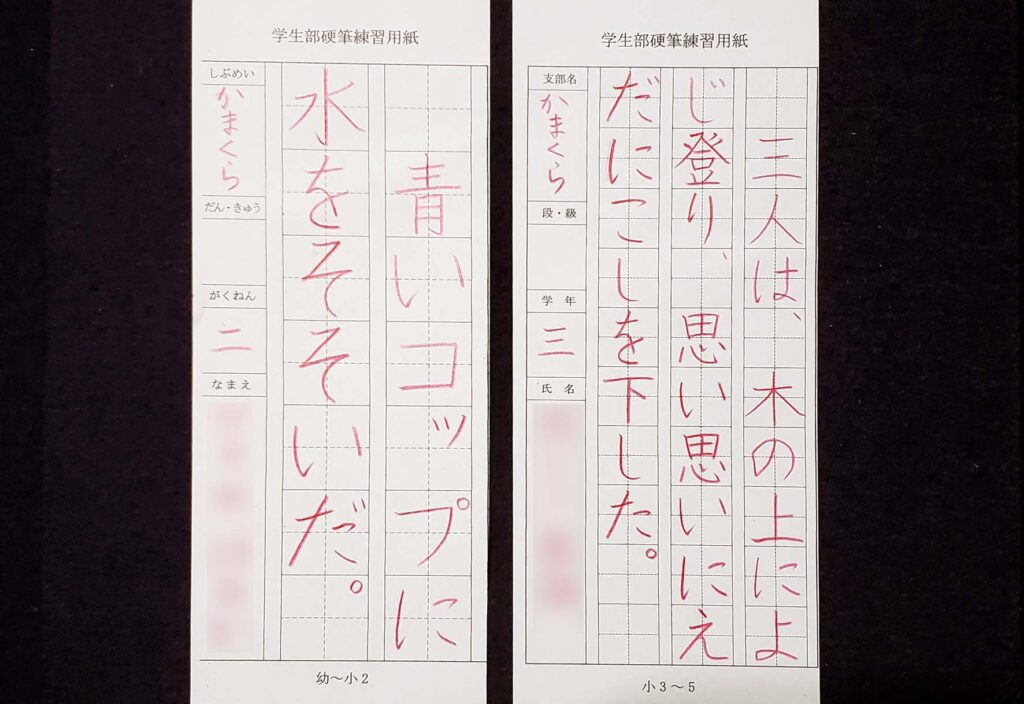 学生部硬筆練習用紙
青いコップに
水をそそいだ。
しぶめい
かまくら
だん・きゅう
がくねん
二
なまえ
幼～小2
学生部硬筆練習用紙
三人は、木の上によ
じ登り、思い思いにえ
だにこしを下した。
支部名
かまくら
段・級
学年
三
氏名
小3～5